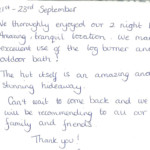 21st - 23rd September
We thoroughly enjoyed our 2 night
Amazing, tranquil location. We made
excellent use of the log burner and
outdoor bath!
The hut itself is an amazing and
stunning hideaway.
Can't wait to come back and we
will be recommending to all our
family and friends
Thank you!